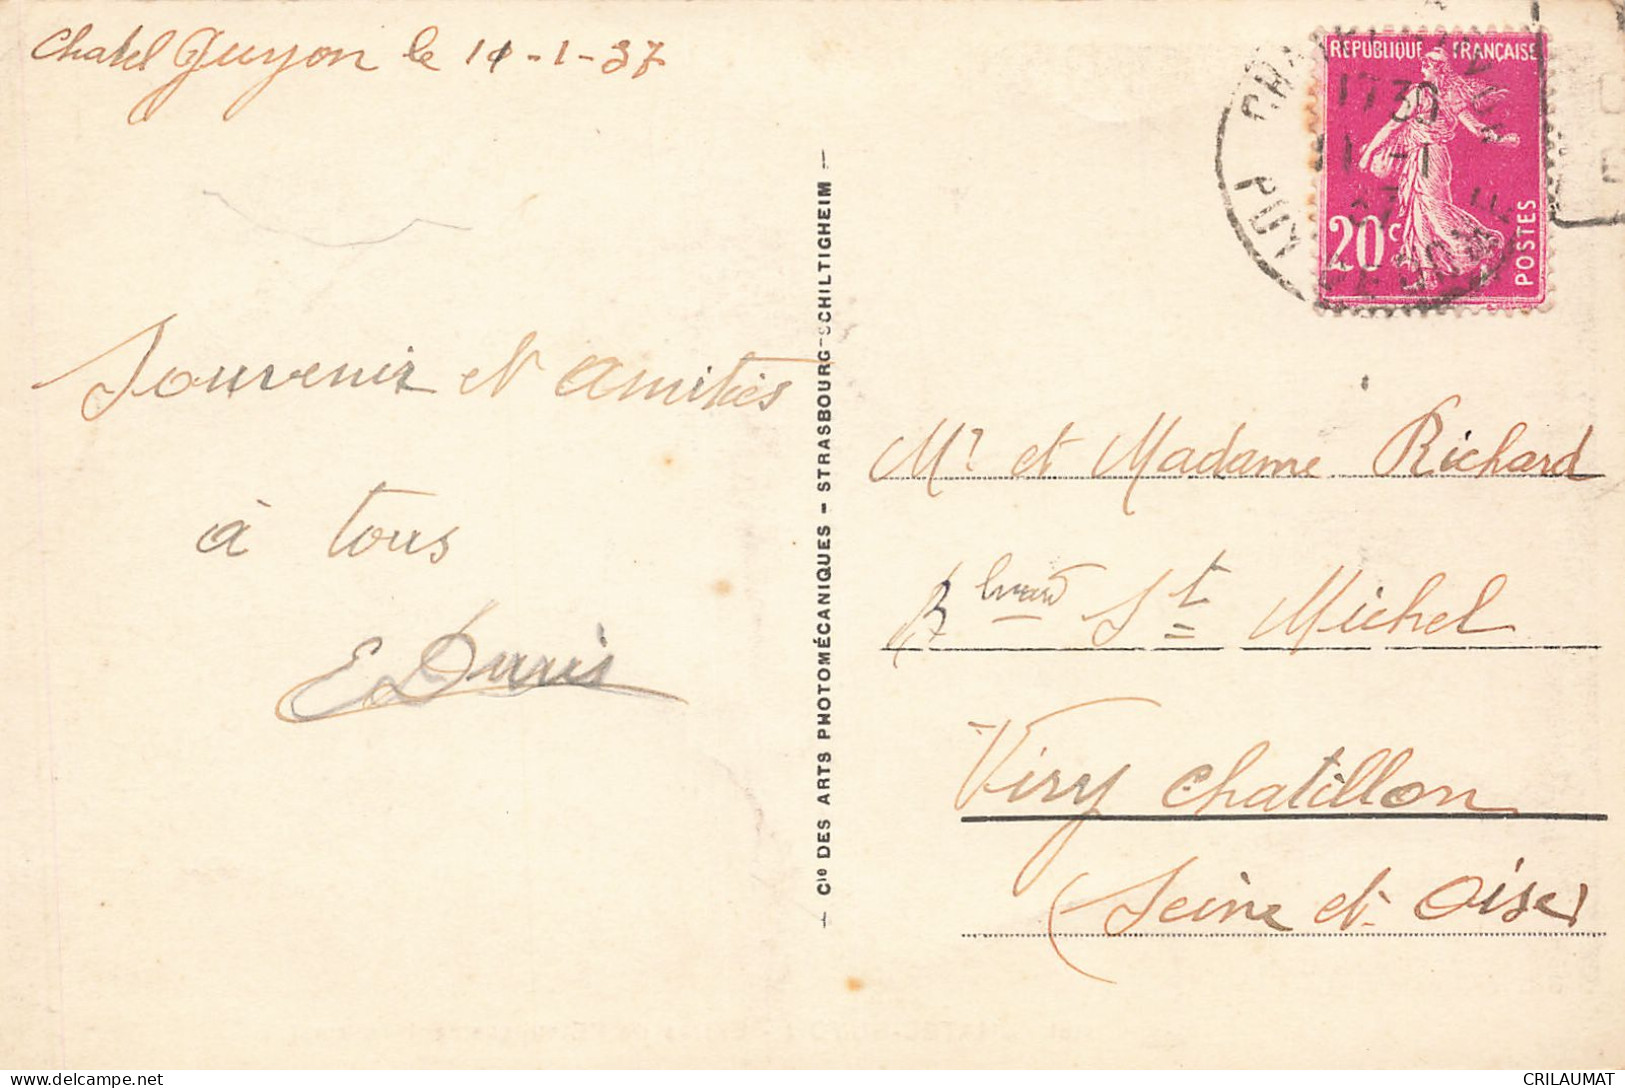 Chatel Guyon le 11-1-37
Souvenir et amitiés
à tous
E Duris
— Cie DES ARTS PHOTOMÉCANIQUES - STRASBOURG-SCHILTIGHEIM —
RÉPUBLIQUE - FRANÇAISE
20c
POSTES
1730
11 -1
37
PUY DE DOME
Mr et Madame Richard
Blvard St Michel
Viry Chatillon
(Seine et Oise)
CRILAUMAT